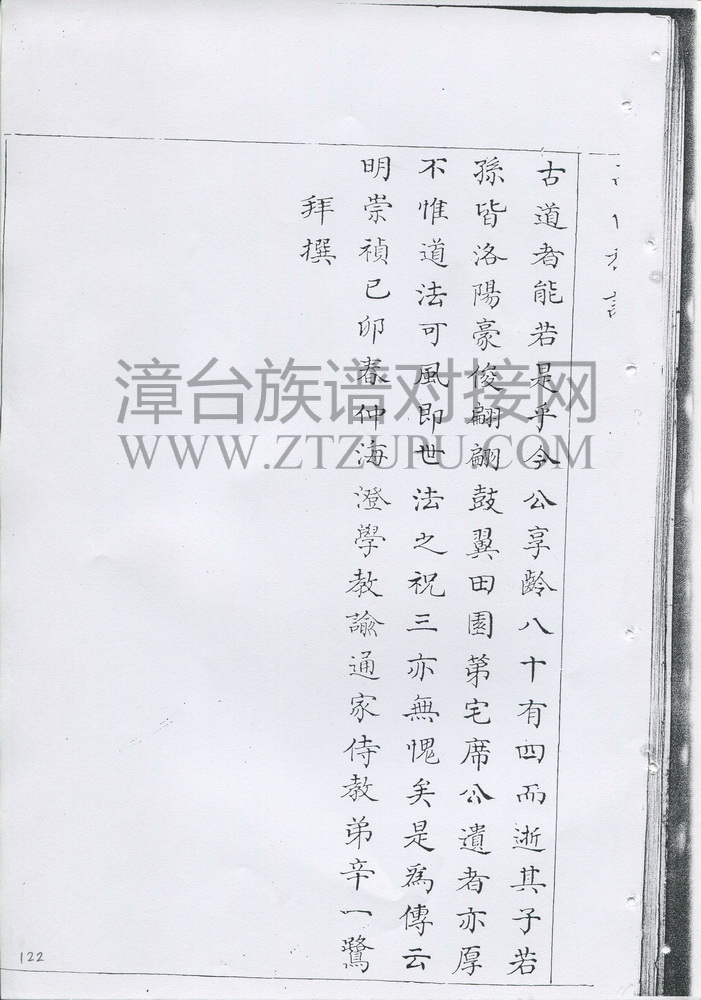 古道者能若是乎今公享齡八十有四而逝其子若
孫皆洛陽豪俊翩翩鼓翼田園第宅席公遺者亦厚
不惟道法可風即世法之祝三亦無愧矣是爲傳云
明崇禎已卯春仲海澄學教諭通家侍教弟辛一鷺
拜撰
漳台族谱对接网
WWW.ZTZUPU.COM
122